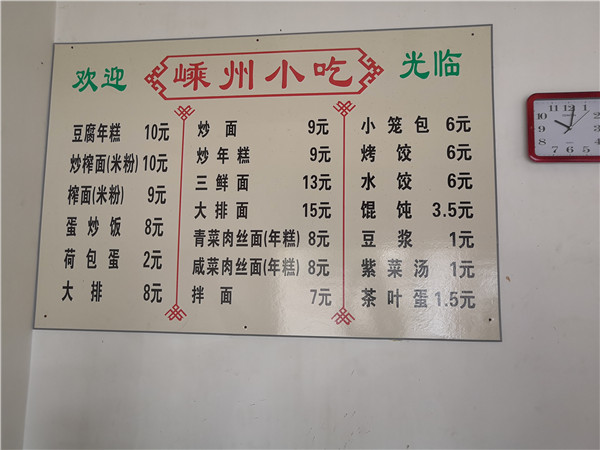 欢迎 嵊州小吃 光临
豆腐年糕 10元
炒榨面(米粉) 10元
榨面(米粉) 9元
蛋炒饭 8元
荷包蛋 2元
大排 8元
炒面 9元
炒年糕 9元
三鲜面 13元
大排面 15元
青菜肉丝面(年糕) 8元
咸菜肉丝面(年糕) 8元
拌面 7元
小笼包 6元
烤饺 6元
水饺 6元
馄饨 3.5元
豆浆 1元
紫菜汤 1元
茶叶蛋 1.5元
11 12 1
10 2
9 3
8 4
7 6 5